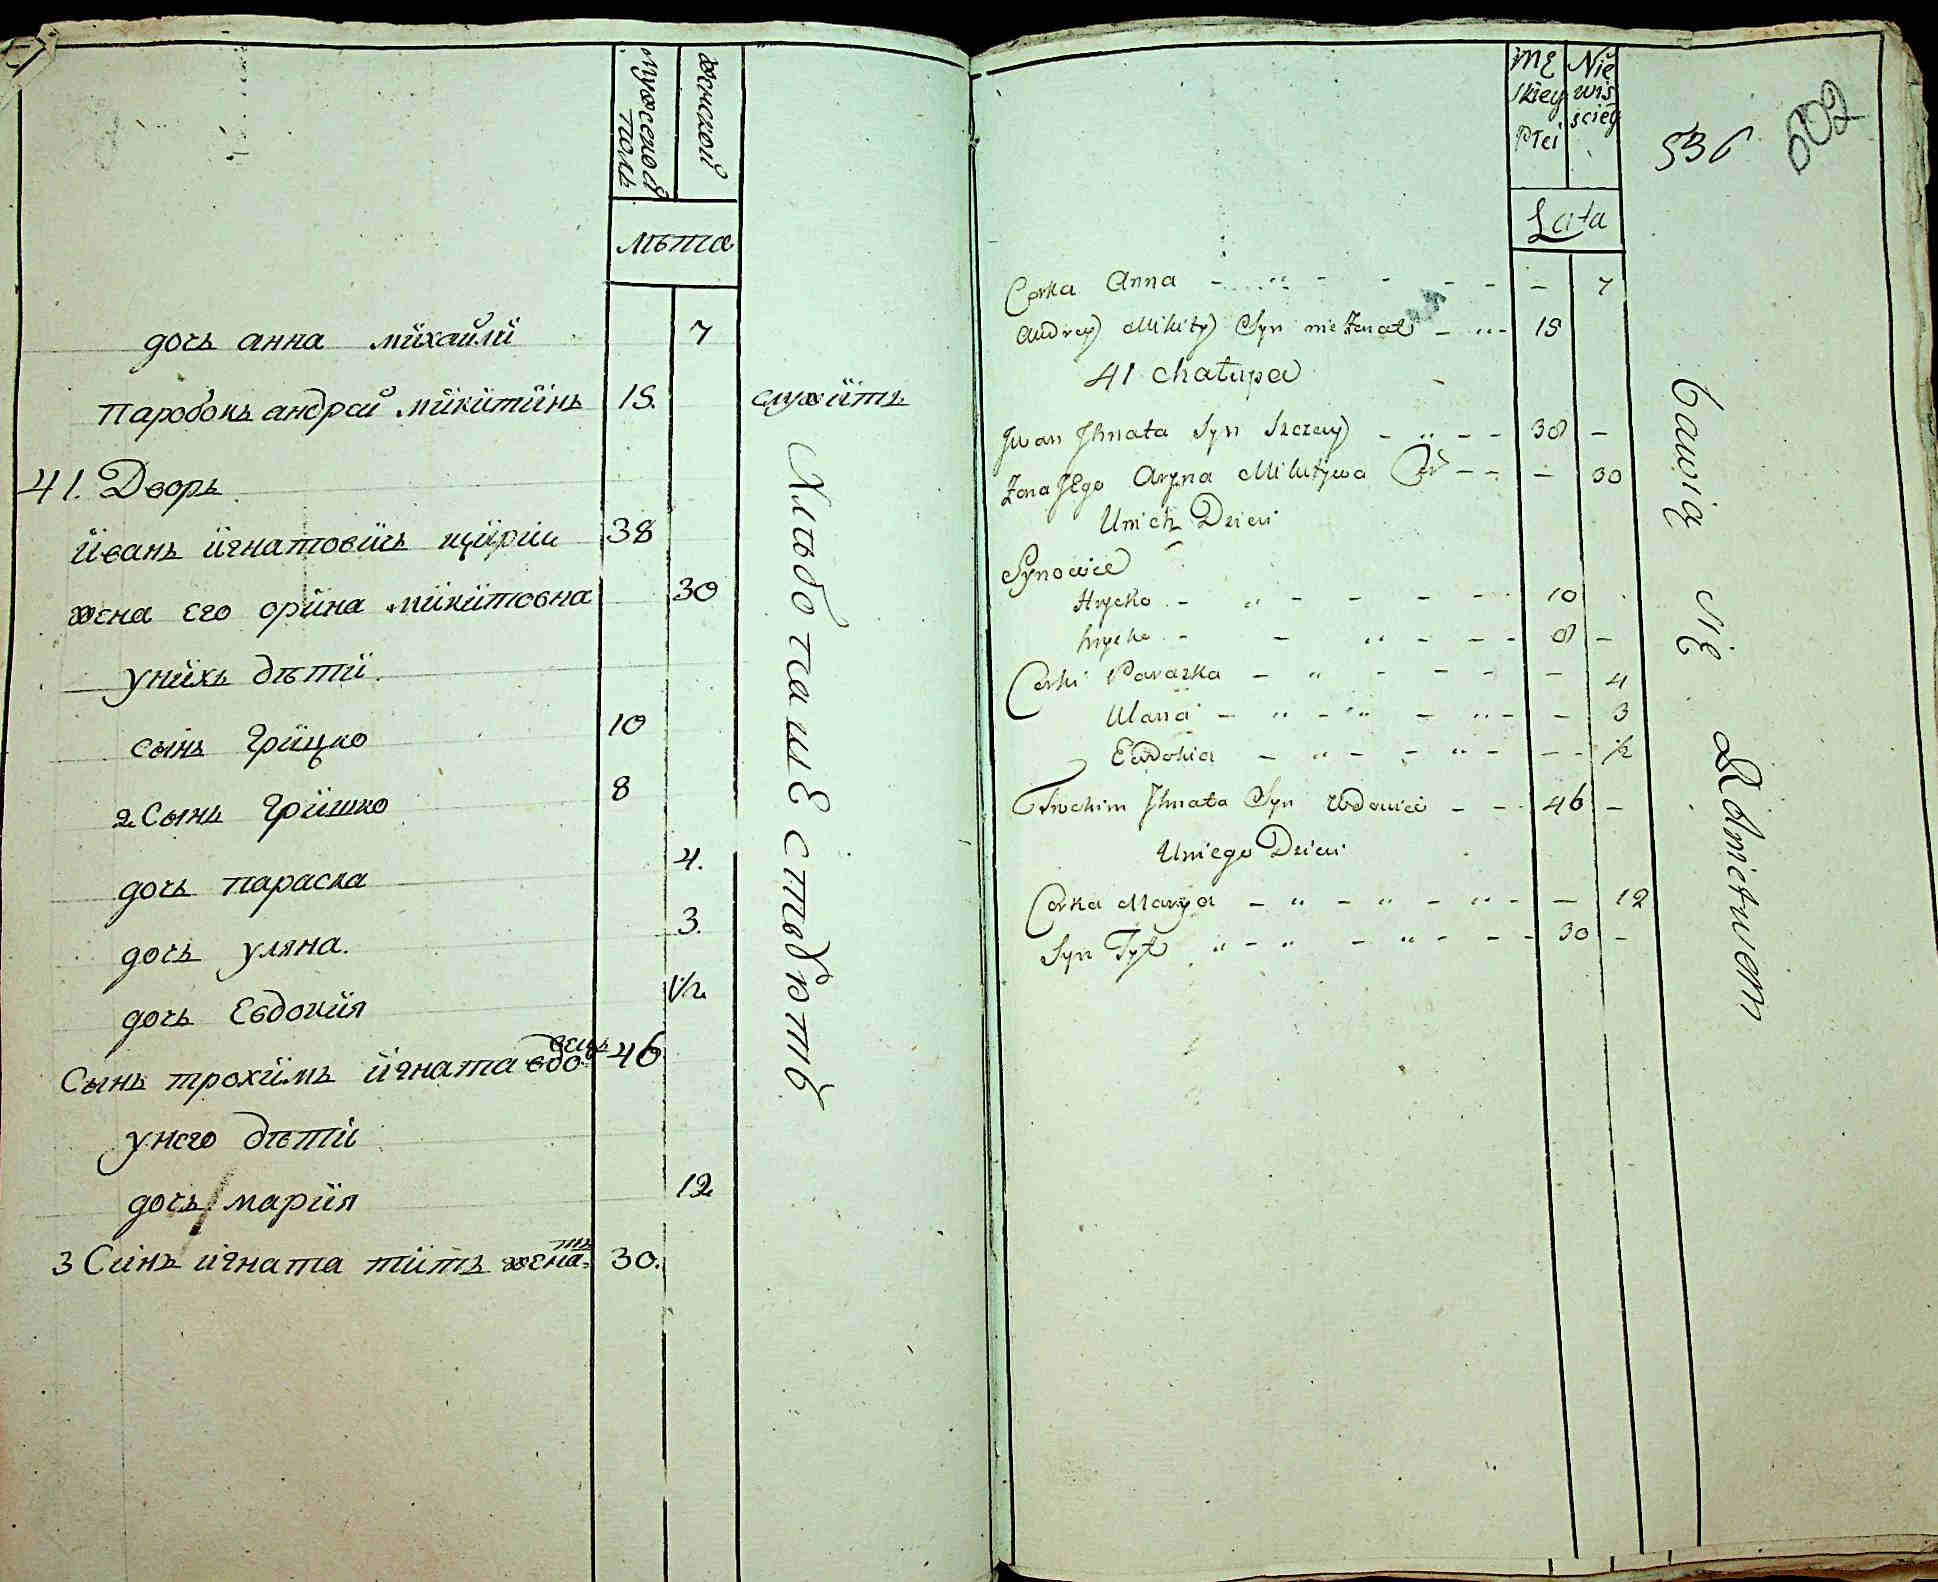 мужеской полъ
женской
лѣта
дочь анна михайли 7
паробокъ андрей микитинъ 15. служитъ
41. Дворъ
иванъ игнатовичъ щирий 38
жена его орина микитовна 30
у нихъ дѣти
сынъ грицко 10
2 Сынъ гришко 8
дочь параска 4.
дочь уляна. 3.
дочь Евдокия 1/2.
Сынъ трохимъ игната вдовецъ 46
у него дѣти
дочь мария 12
3 Синъ игната титъ женатъ 30.
Хлѣбопашество
Mę skiey Płci
Nie wis sciey
Lata
536
602
Corka Anna - - - - 7
Andrey Mikity Syn nieżenat - 15
41 chałupa
Jwan Jhnata Syn Szczery - - 38 -
Żona Jego Aryna Mikitywa - - - 30
U nich Dzieci
Synowie
Hrycko - - - - 10
hrycko - - - - 8 -
Corki Paraska - - - - 4
Ulana - - - - 3
Eudokia - - - - 1/2
Trochim Jhnata Syn Wdowiec - - 46 -
U niego Dzieci
Corka Marya - - - - 12
Syn Tyt - - - - 30 -
bawią się Rolnictwem